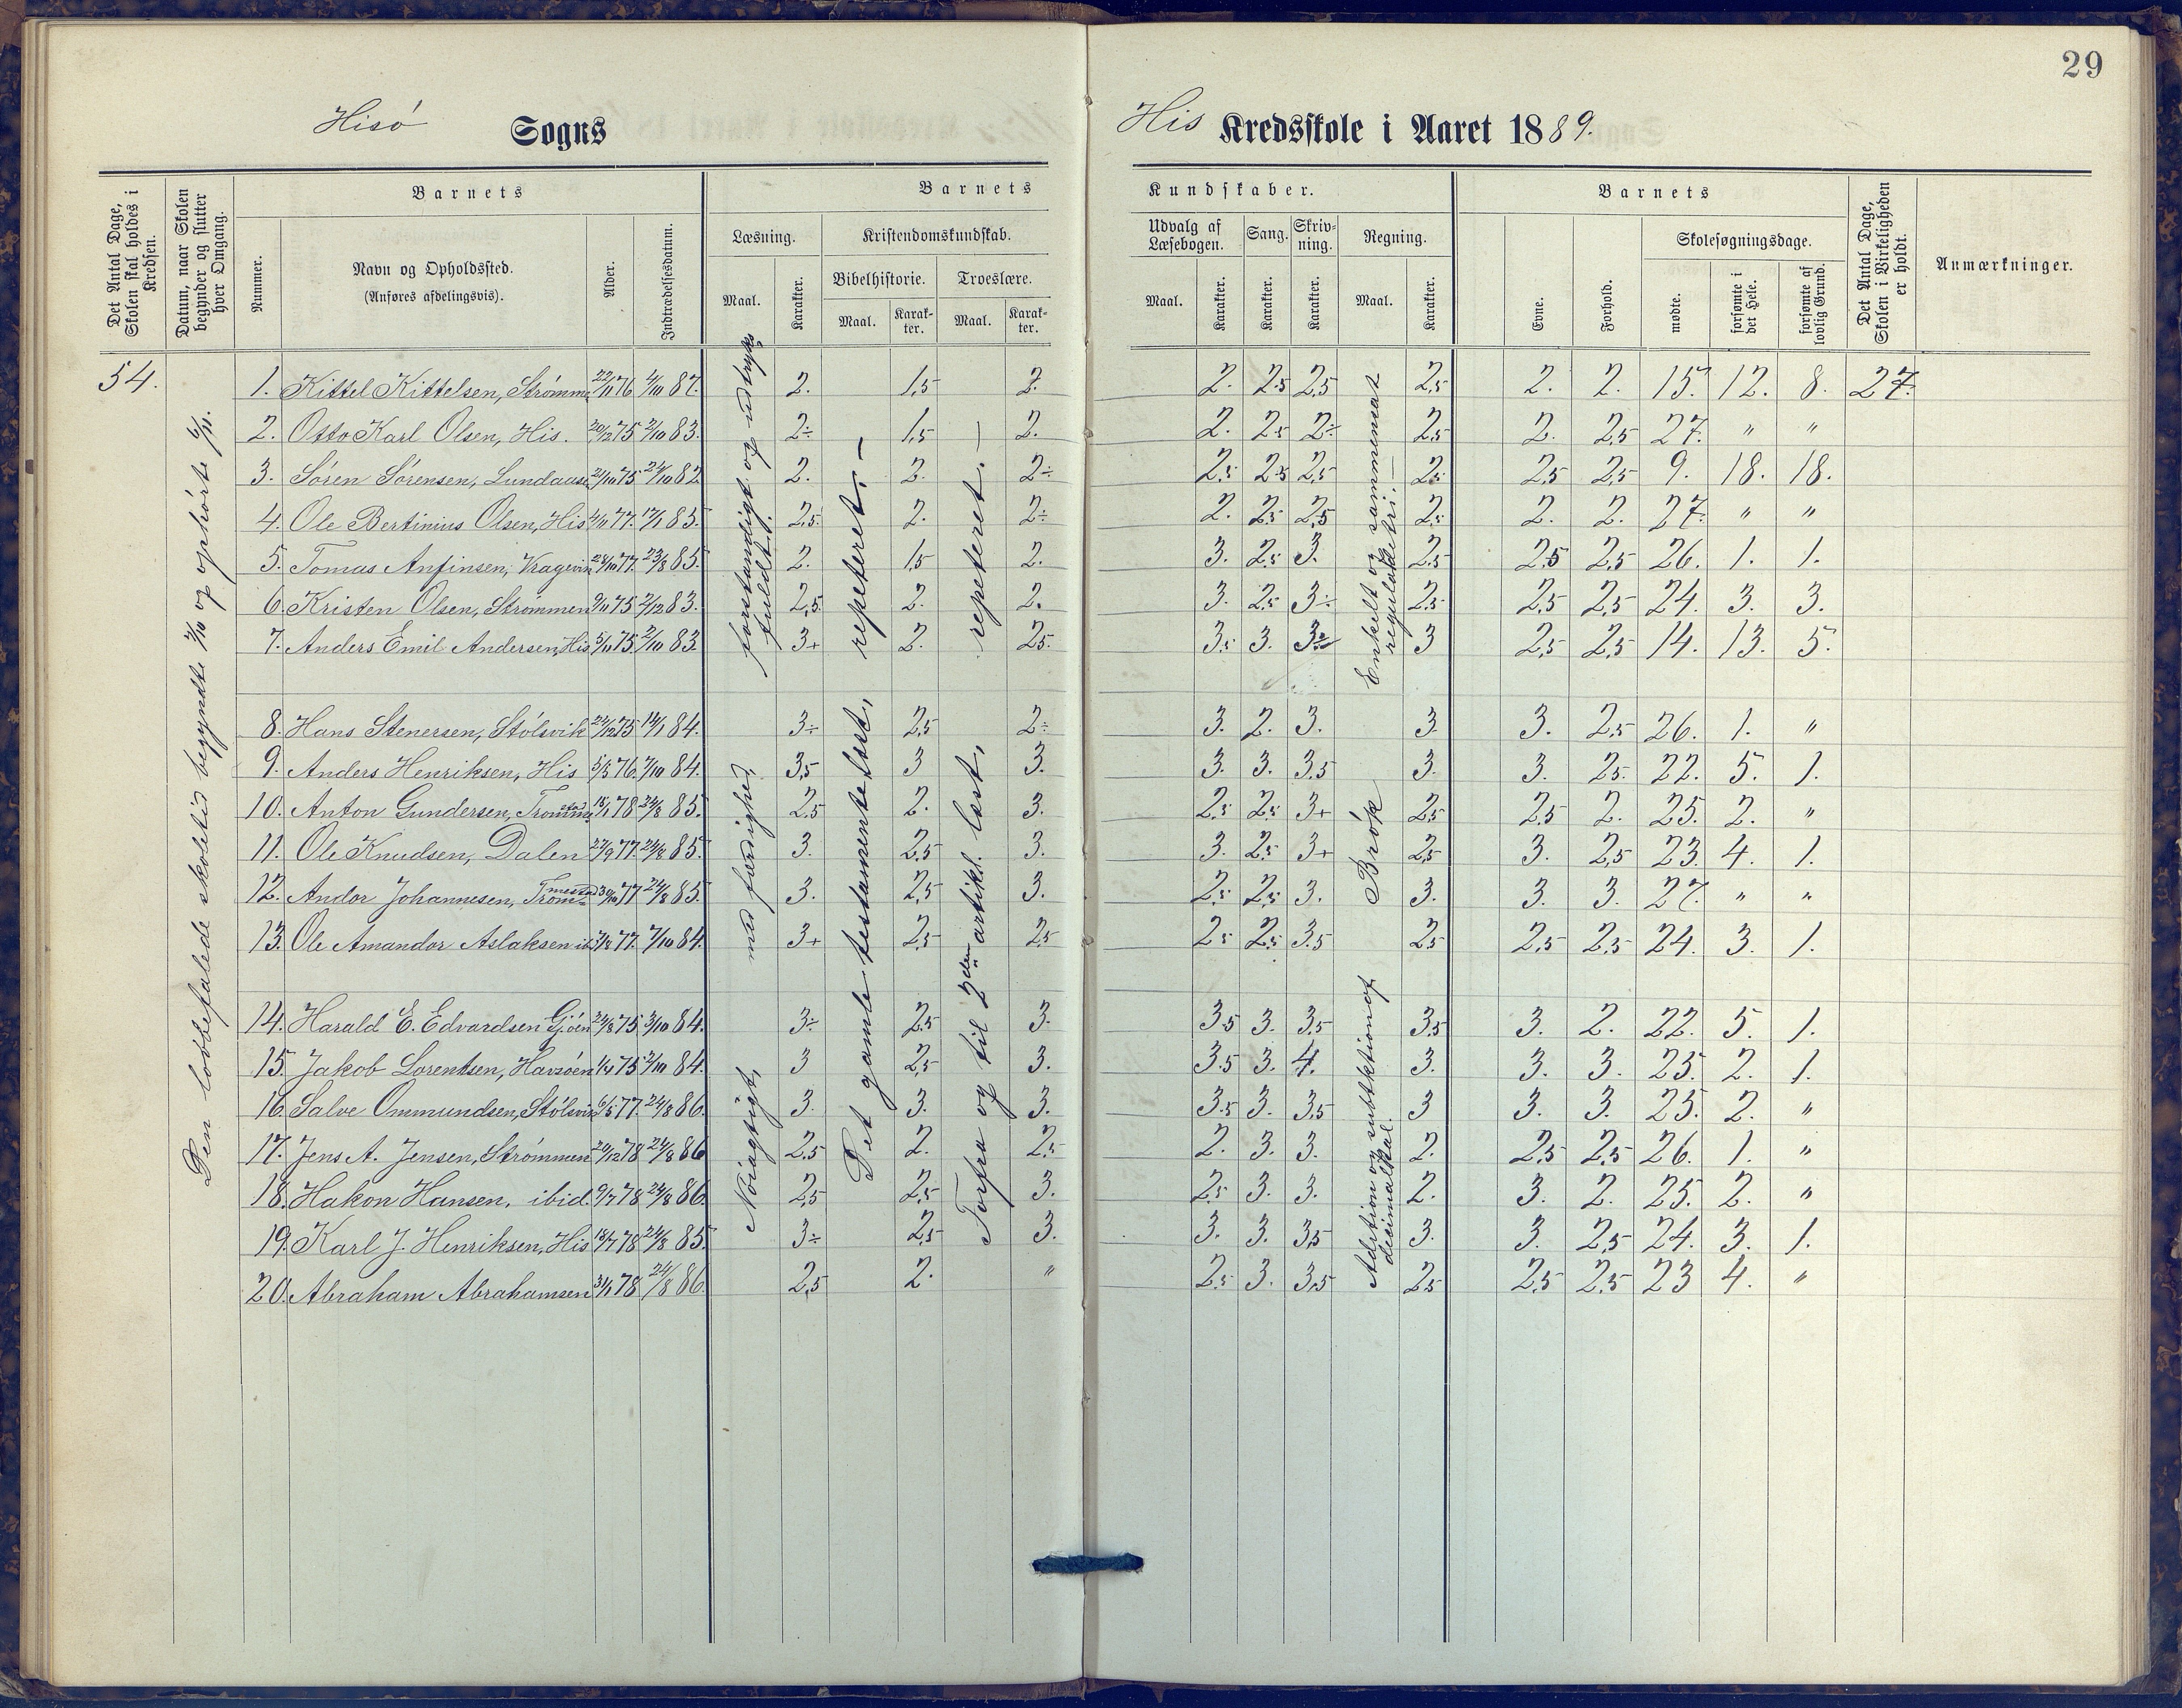 29
Hisö Sogns
His Kredsskole i Aaret 1889.
Det Antal Dage, Skolen skal holdes i Kredsen.
Datum, naar Skolen begynder og slutter hver Omgang.
Barnets
Nummer.
Navn og Opholdssted.
(Anføres afdelingsvis).
Alder.
Indtrædelsesdatum.
Barnets Kundskaber.
Læsning.
Maal.
Karakter.
Kristendomskundskab.
Bibelhistorie.
Maal.
Karakter.
Troeslære.
Maal.
Karakter.
Udvalg af Læsebogen.
Maal.
Karakter.
Sang.
Karakter.
Skrivning.
Karakter.
Regning.
Maal.
Karakter.
Barnets
Evne.
Forhold.
Skolesøgningsdage.
mødte.
forsømte i det Hele.
forsømte af lovlig Grund.
Det Antal Dage, Skolen i Virkeligheden er holdt.
Anmærkninger.
54.
Den lovbefalede skoletid begyndte 2/10 og ophørte 6/11.
Nöiagtigt, med færdighed, forstandigt og udtryksfuldt.
Det gamle testamente læst, repeteret.
Forfra og til 2den artikl. læst, repeteret.
Enkelt og sammensat reguladetri.
Brök
Adition og subtktion af decimalbal.
1. Kittel Kittelsen, Strømm. 22/11 76 4/10 87. 2. 1,5 2. 2. 2,5 2,5 2,5 2. 2. 15. 12. 8. 27.
2. Otto Karl Olsen, His. 20/12 75 2/10 83. 2÷ 1,5 2. 2. 2,5 2÷ 2,5 2. 2,5 27. " "
3. Søren Sørensen, Lundaas 21/10 75 24/10 82 2. 2. 2÷ 2,5 2,5 2,5 2,5 2,5 2,5 9. 18. 18.
4. Ole Bertinius Olsen, His 4/11 77. 17/1 83. 2,5. 2. 2÷ 2. 2,5 2,5 2,5 2. 2. 27. " "
5. Tomas Anfinsen, Kragevik 28/10 77. 23/8 85. 2. 1,5 2. 3. 2,5 3. 2,5 2,5 2,5 26. 1. 1.
6. Kristen Olsen, Strømmen 9/11 75 2/12 83. 2,5. 2. 2. 3. 2,5 3÷ 2,5 2,5 2,5 24. 3. 3.
7. Anders Emil Andersen, His 5/11 75. 2/10 83. 3+ 2. 2,5. 3,5 3. 3÷ 3 2,5 2,5 14. 13. 5.
8. Hans Stenersen, Stölsvik 24/12 75 14/1 84. 3÷ 2,5 2÷ 3. 2. 3. 3. 3. 2,5 26. 1. "
9. Anders Henriksen, His 5/3 76. 7/10 84. 3,5 3 3. 3. 3. 3,5 3. 3. 2,5. 22. 5. 1.
10. Anton Gundersen, Trommestad 18/1 78 24/8 85. 2,5 2. 3. 2,5 2,5 3+ 2,5 2,5 2. 25. 2. "
11. Ole Knudsen, Dalen 27/9 77. 24/8 85. 3. 2,5 3. 3. 2,5 3+ 2,5 3. 2,5 23. 4. 1.
12. Andor Johannesen, Trommestad 30/10 77 24/8 85. 3. 2,5 3. 2,5 2,5 3. 3. 3. 3. 27. " "
13. Ole Amandor Aslaksen ib. 7/8 77. 7/10 84. 3+ 2,5 2,5 2,5 2,5 3,5 2,5 2,5 2,5 24. 3. 1.
14. Harald E. Edvardsen Gjöen 24/8 75 3/10 84. 3÷ 2,5 3. 3,5 3. 3,5 3,5 3. 2. 22. 5. 1.
15. Jakob Lorentsen, Havsöen 1/4 75 2/10 84. 3 2,5 3. 3,5 3. 4. 3. 3. 3. 25. 2. 1.
16. Salve Ommundsen, Stölsvik 6/5 77. 24/8 86. 3. 3. 3. 3,5 3. 3,5 3 3. 3. 25. 2. "
17. Jens A. Jensen, Strømmen 20/12 78 24/8 86 2,5 2. 2,5 2. 3. 3. 2. 2,5 2,5 26. 1. "
18. Hakon Hansen, ibid. 9/7 78 24/8 86. 2,5 2,5 3. 2,5 3. 3. 2. 3. 2. 25. 2. "
19. Karl J. Henriksen, His 18/7 78 24/8 85. 3÷ 2,5 3. 3. 3. 3,5 3. 3. 2,5 24. 3. 1.
20. Abraham Abrahamsen 31/1 78 24/8 86. 2,5 2. " 2,5 3. 3,5 2,5 2,5 2,5 23 4. "